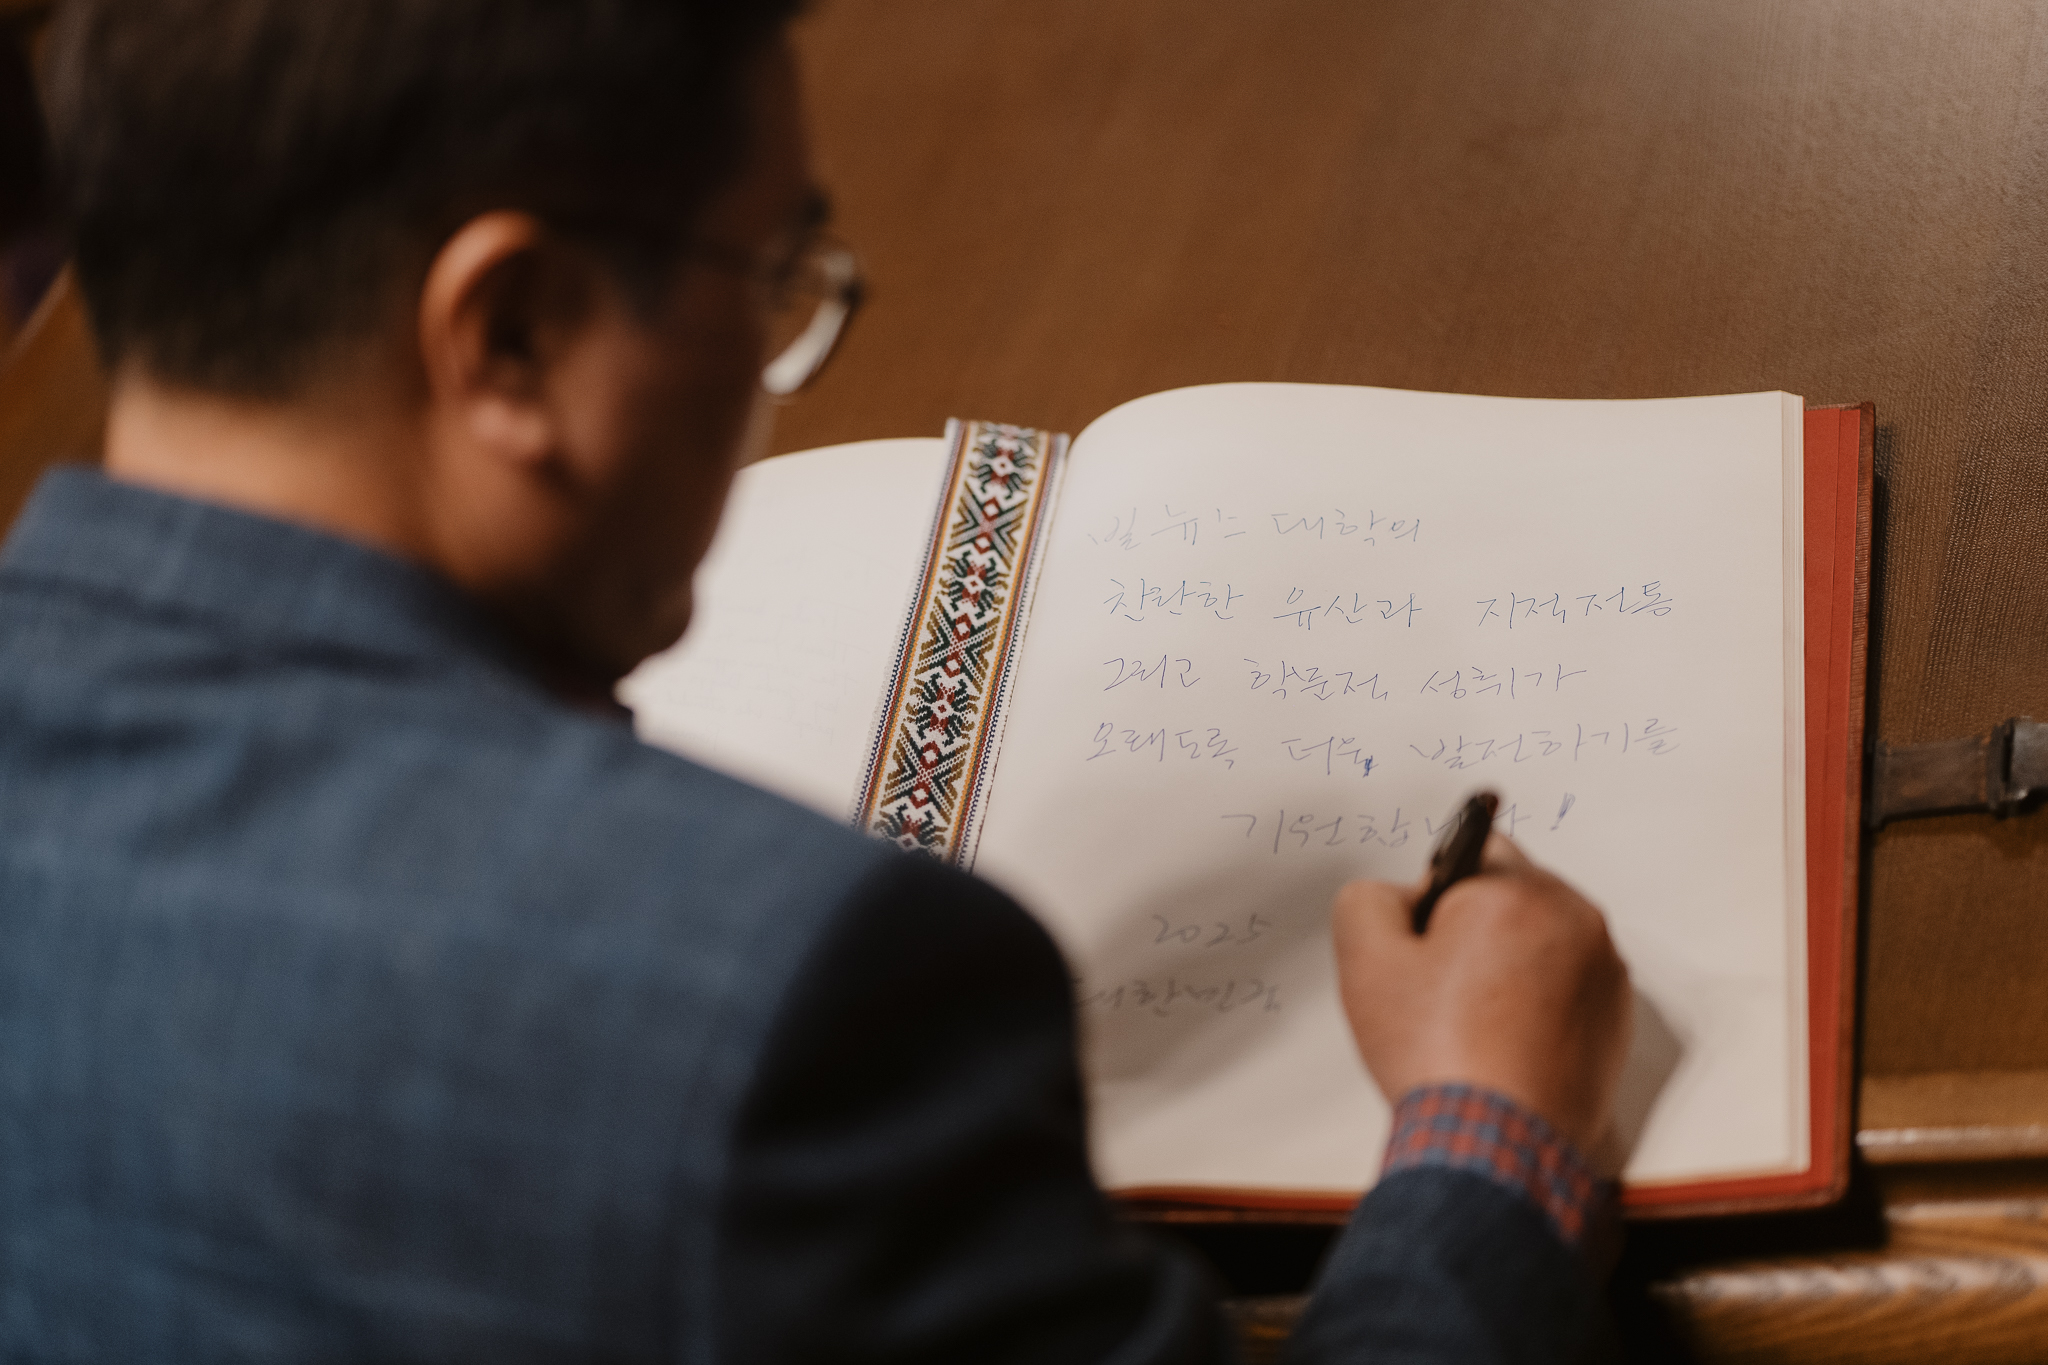 빌뉴스 대학의
찬란한 유산과 지적전통
그리고 학문적 성취가
오래도록 더욱 발전하기를
기원합니다!
2025
대한민국